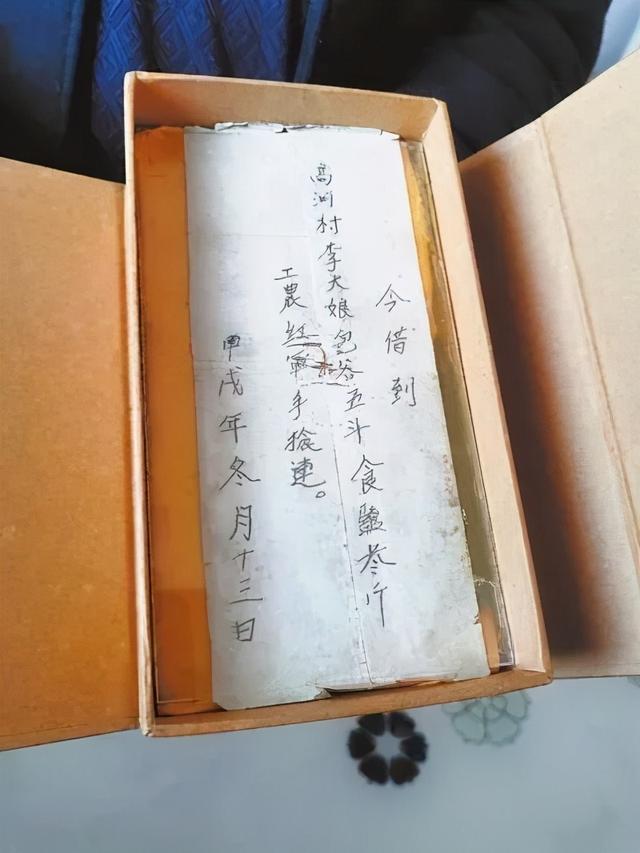 今借到
高洞村李大娘包谷五斗食鹽叁斤
工農红軍手捨連。
甲戌年冬月十三日